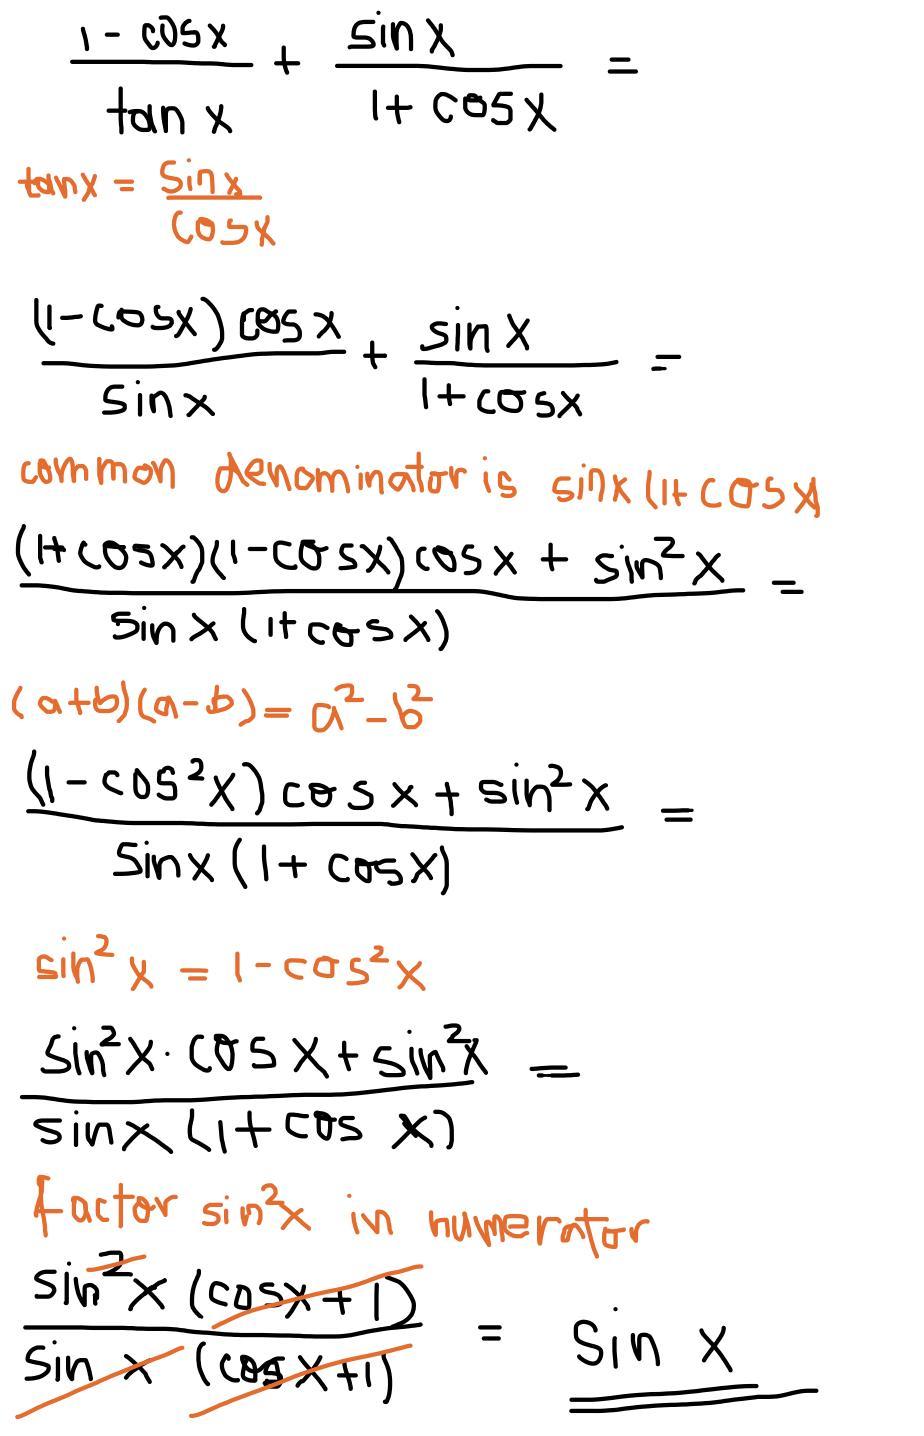 (1 - cosx)/(tan x) + (sin x)/(1 + cosx) =
tanx = (sinx)/(cosx)
((1-cosx) cosx)/(sin x) + (sin x)/(1+cosx) =
common denominator is sinx (1+cosx)
((1+cosx)(1-cosx) cosx + sin²x)/(sin x (1+cosx)) =
(a+b)(a-b) = a²-b²
((1-cos²x) cosx + sin²x)/(sinx (1+ cosx)) =
sin²x = 1-cos²x
(sin²x · cosx + sin²x)/(sinx (1+cos x)) =
factor sin²x in numerator
(sin²x (cosx + 1))/(sin x (cosx+1)) = sin x